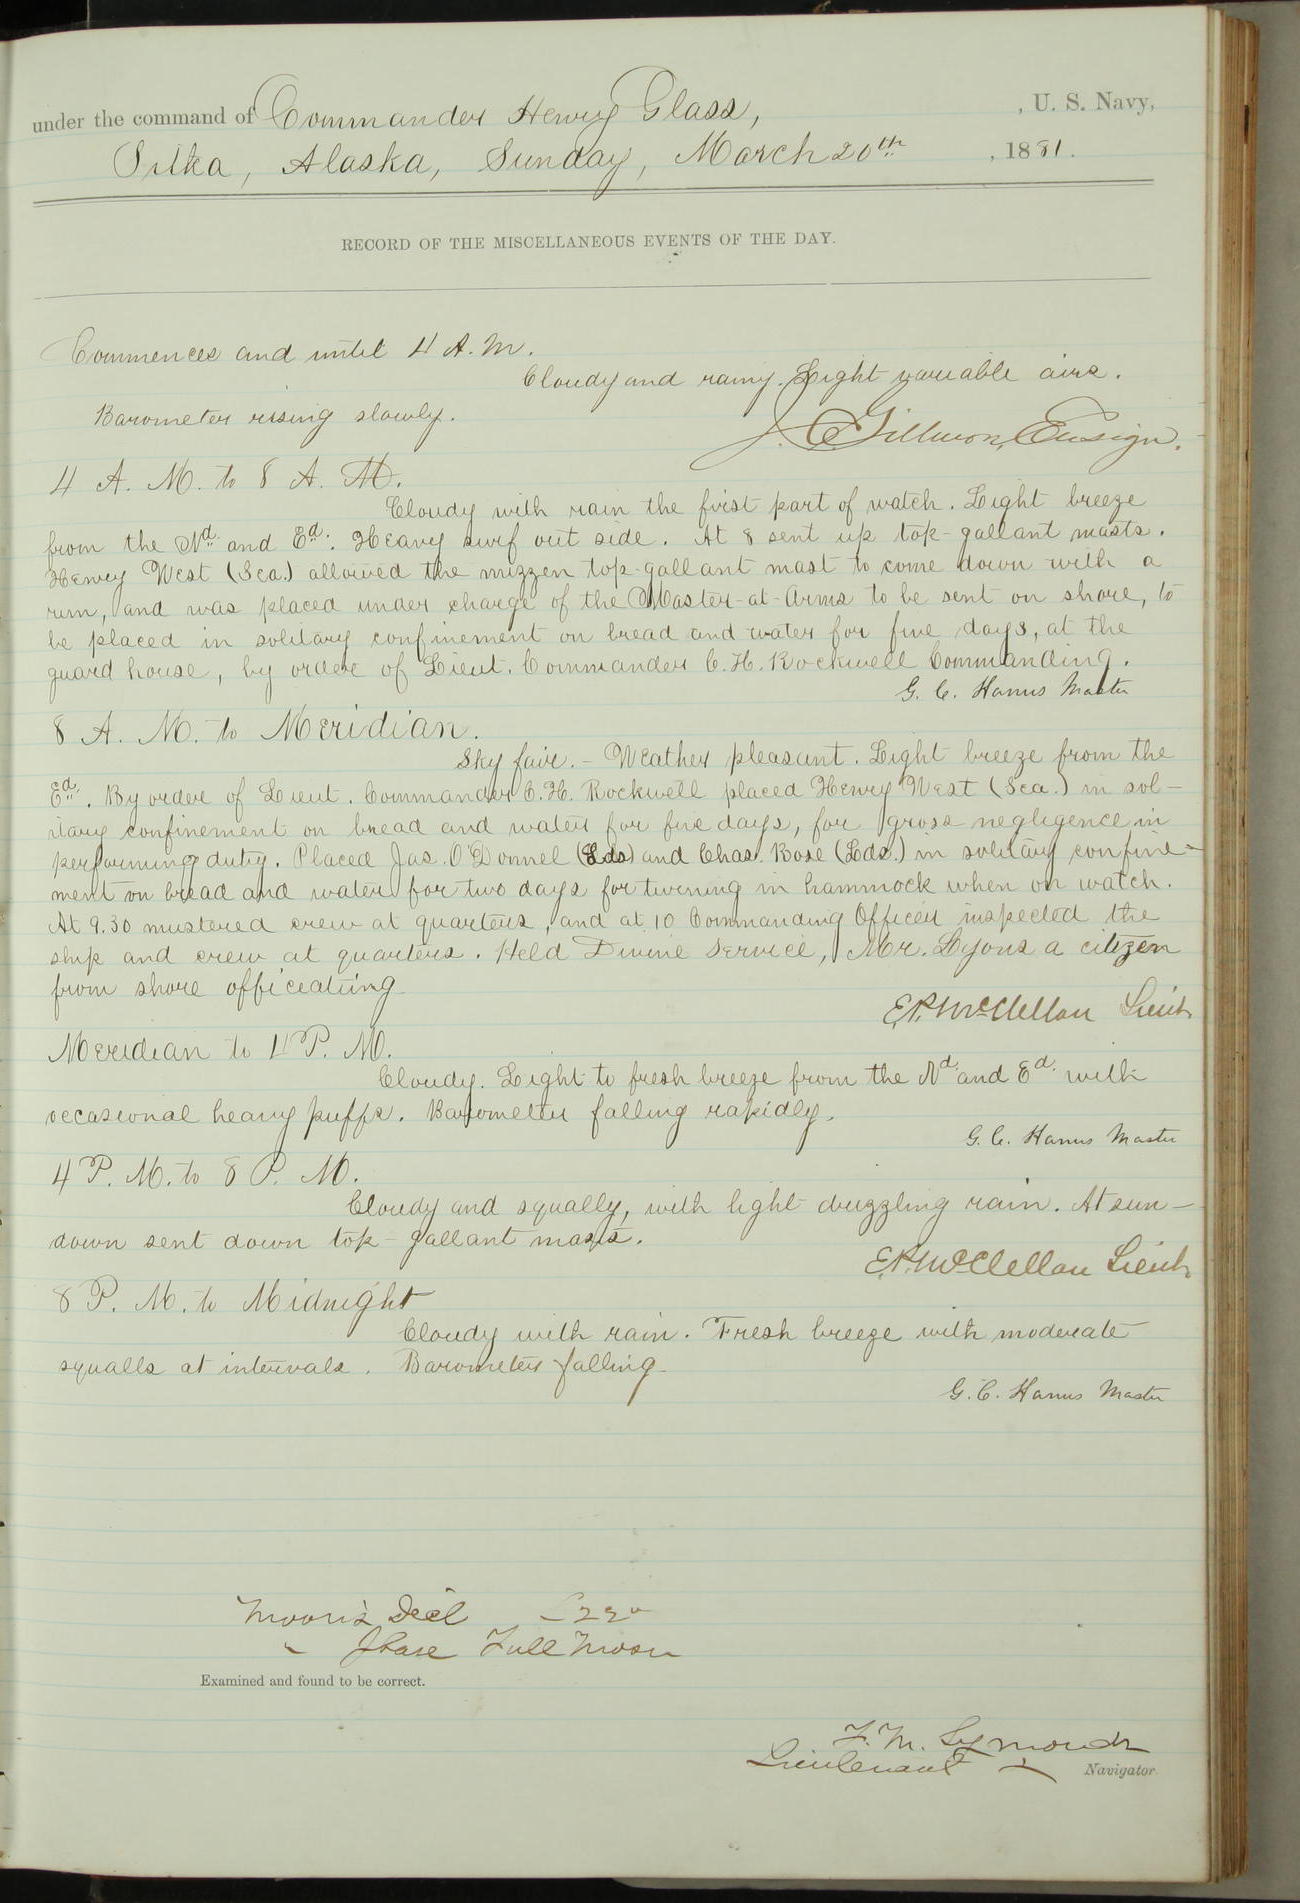 under the command of Commander Henry Glass, , U. S. Navy,
Sitka, Alaska, Sunday, March 20th , 1881.
RECORD OF THE MISCELLANEOUS EVENTS OF THE DAY.
Commences and until 4 A. M.
Cloudy and rainy. Light variable airs.
Barometer rising slowly.
J. C. Gillmore, Ensign.
4 A. M. to 8 A. M.
Cloudy with rain the first part of watch. Light breeze
from the Nd. and Ed. Heavy surf out side. At 8 sent up top-gallant masts.
Henry West (Sea.) allowed the mizzen top-gallant mast to come down with a
run, and was placed under charge of the Master-at-Arms to be sent on shore, to
be placed in solitary confinement on bread and water for five days, at the
guard house, by order of Lieut. Commander C. H. Rockwell Commanding.
G. C. Hanus Master
8 A. M. to Meridian.
Sky fair. - Weather pleasant. Light breeze from the
Ed. By order of Lieut. Commander C. H. Rockwell placed Henry West (Sea.) in sol-
itary confinement on bread and water for five days, for gross negligence in
performing duty. Placed Jas. O'Donnel (Lds) and Chas. Bose (Lds.) in solitary confine-
ment on bread and water for two days for turning in hammock when on watch.
At 9.30 mustered crew at quarters, and at 10 Commanding Officer inspected the
ship and crew at quarters. Held Divine Service, Mr. Lyons a citizen
from shore officiating
E. P. McClellan Lieut
Meridian to 4 P. M.
Cloudy. Light to fresh breeze from the Nd. and Ed. with
occasional heavy puffs. Barometer falling rapidly.
G. C. Hanus Master
4 P. M. to 8 P. M.
Cloudy and squally, with light druzzling rain. At sun-
down sent down top-gallant masts.
E. P. McClellan Lieut
8 P. M. to Midnight
Cloudy with rain. Fresh breeze with moderate
squalls at intervals. Barometer falling
G. C. Hanus Master
Moon's Decl
" Phase Full Moon
Examined and found to be correct.
F. M. Symonds
Lieutenant Navigator